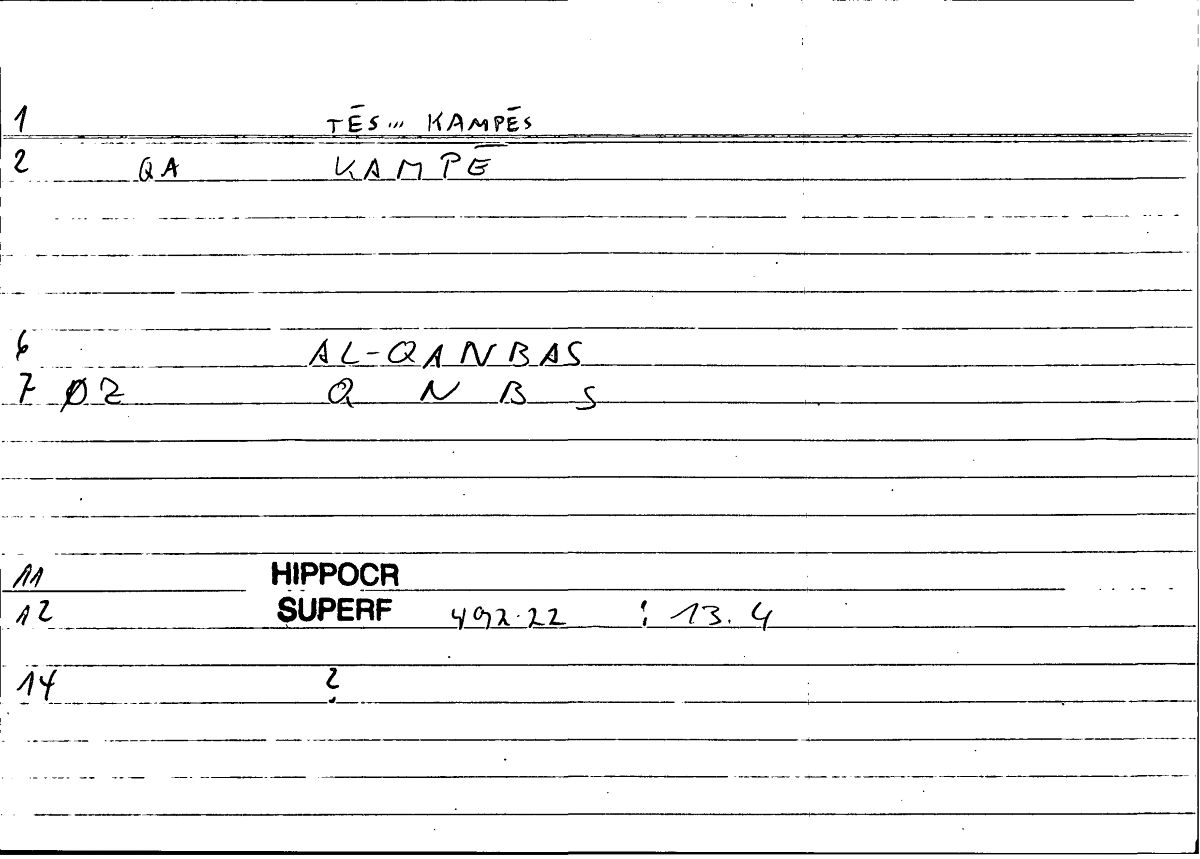 1 TĒS... KAMPĒS
2 QA KAMPĒ
6 AL-QANBAS
7 ØZ Q N B S
11 HIPPOCR
12 SUPERF 492.22 : 13.4
14 ?